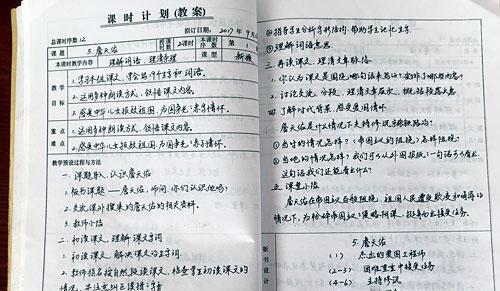 课时计划(教案)
拟订日期: 2017年9月
总课时序数 12
课题 5. 詹天佑 授课时数 2课时 本课序数 第1
本课时教学内容 理解词语,理清条理 课型 新授
教学目标
1. 学习本组课文,学会第19个生字和词语。
2. 运用多种朗读方式,领悟课文内容。
3. 感受中华儿女报效祖国,为国争光的爱国情怀。
重点难点
1. 运用多种朗读方式,领悟课文内容。
2. 感受中华儿女报效祖国,为国争光的爱国情怀。
教学预设过程与方法
一、课题导入,认识詹天佑
1. 板书课题——詹天佑,师问:你们认识他吗?
2. 交流课外搜集的詹天佑的相关资料。
3. 教师小结
二、初读课文,理解课文字词
1. 初读课文,解决课文的生字词。
2. 教师指名按自然段读课文,检查学生初读课文的
情况,并注意纠正读错字音
②指导学生分析字形结构,帮助学生记忆生字。
③理解词语意思
三、再读课文,理清文章脉络。
1. 你认为课文是围绕哪句话来写的?安排了哪些内容?
2. 讨论交流,分段,理清文章层次,概括段落大意
四、了解时代背景,感受爱国情怀。
詹天佑是什么情况下主持修筑京张铁路的?
①当时的情况怎样?(帝国主义的阻挠)怎样阻挠?
②当地的情况怎样?我们可以从外国报纸的一句话可以看出。
这句话我们还能看出什么?
五、课堂小结
詹天佑在帝国主义百般阻挠,祖国人民遭受欺凌和嘲弄的
情况下,为粉碎帝国主义侵略阴谋,挺身而出接受任务。
板书设计
5. 詹天佑
(1) 杰出的爱国工程师
(2-3) 困难重重中接受任务
(4-6) 主持修筑